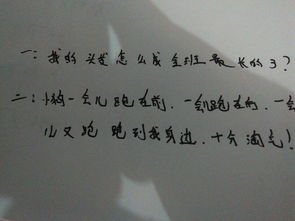 一：我的头发怎么成全班最长的了？
二：小狗一会儿跑在前，一会儿跑在后，一会
儿又跑 跑到我身边，十分淘气！